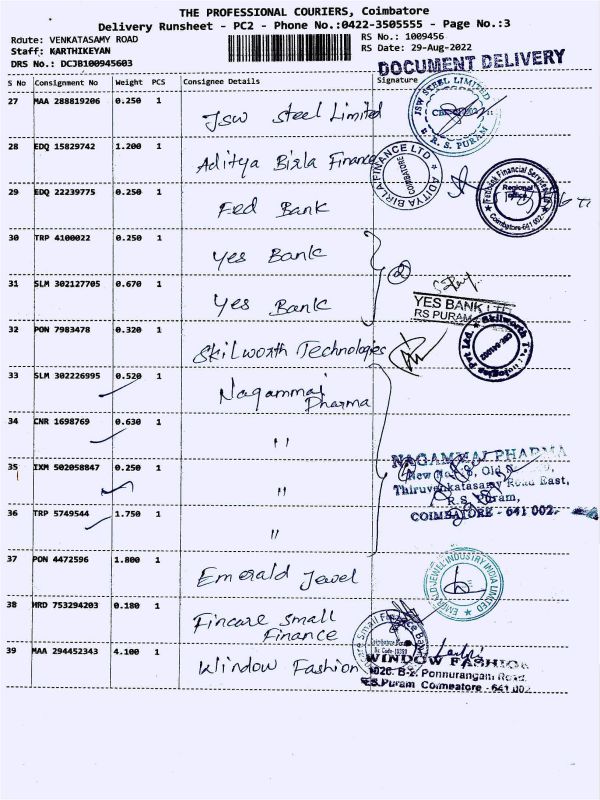 THE PROFESSIONAL COURIERS, Coimbatore
Delivery Runsheet - PC2 - Phone No.:0422-3505555 - Page No.:3
Route: VENKATASAMY ROAD
Staff: KARTHIKEYAN
DRS No.: DCJB100945603
RS No.: 1009456
RS Date: 29-Aug-2022
DOCUMENT DELIVERY
S No Consignment No Weight PCS Consignee Details Signature
27 MAA 288819206 0.250 1 JSW Steel Limited
JSW STEEL LIMITED
R. S. PURAM
28 EDQ 15829742 1.200 1 Aditya Birla Finance
ADITYA BIRLA FINANCE LTD
COIMBATORE
29 EDQ 22239775 0.250 1 Fed Bank
Fedbank Financial Services
Regional Office
Coimbatore-641 002
30 TRP 4100022 0.250 1 Yes Bank
2
31 SLM 302127705 0.670 1 Yes Bank
YES BANK LTD
RS PURAM
32 PON 7983478 0.320 1 Skilworth Technologies
Skilworth Technologies Pvt Ltd.
33 SLM 302226995 0.520 1 Nagammai
Pharma
34 CNR 1698769 0.630 1 "
35 IXM 502058847 0.250 1 "
NAGAMMAI PHARMA
New No. 8, Old
Thiruvenkatasamy Road East,
R.S. Puram,
COIMBATORE - 641 002.
36 TRP 5749544 1.750 1 "
37 PON 4472596 1.800 1 Emerald Jewel
EMERALD JEWEL INDUSTRY INDIA LIMITED
38 HRD 753294203 0.180 1 Fincare Small
Finance
Fincare Small Finance Bank
39 MAA 294452343 4.100 1 Window Fashion
WINDOW FASHION
B-2. Ponnurangam Road.
R.S.Puram Coimbatore - 641 002